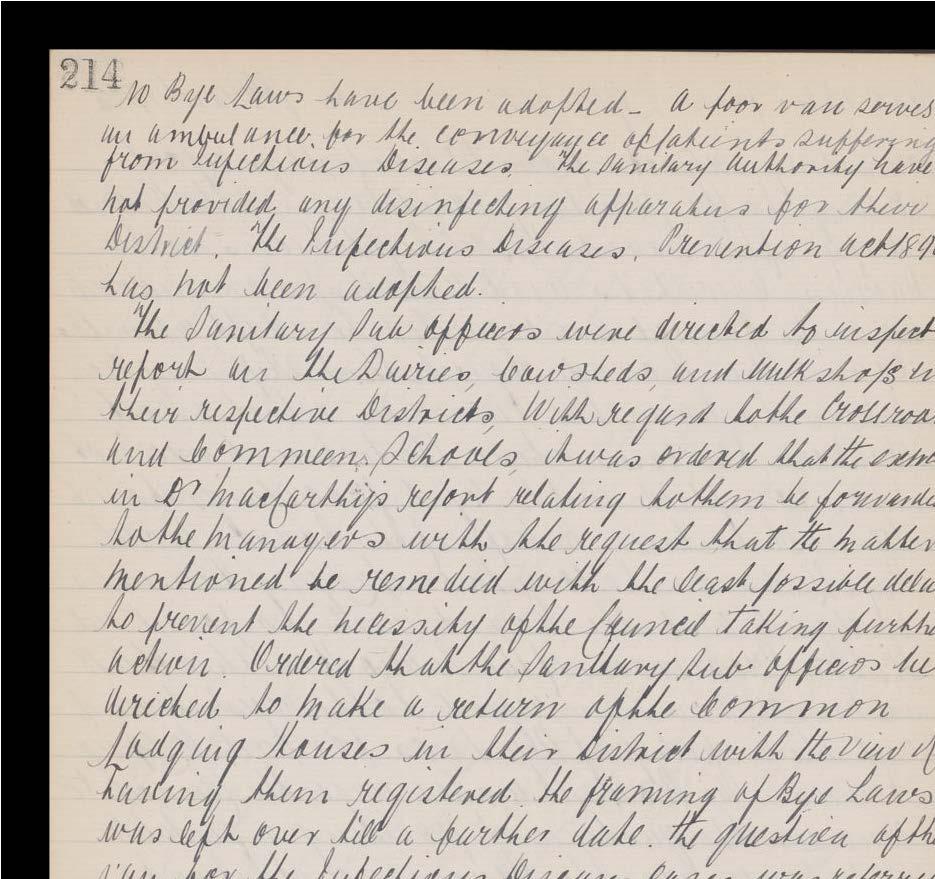 214
No Bye Laws have been adopted - A poor van serves
an ambulance for the conveyance of patients suffering
from Infectious Diseases. The Sanitary Authority have
not provided any disinfecting apparatus for their
District. The Infectious Diseases, Prevention Act 189
has not been adopted.
The Sanitary Sub officers were directed to inspect
report on the Dairies, Cowsheds, and Milkshops in
their respective Districts, With regard to the Crossroa
and Commeen Schools, it was ordered that the
in Dr MacCarthy's report relating to them be forwarde
to the Managers with the request that the matter
mentioned be remedied with the least possible dela
to prevent the necessity of the Council Taking furthe
action. Ordered that the Sanitary Sub officers be
directed to make a return of the Common
Lodging Houses in their District with the view of
having them registered. the framing of Bye Laws
was left over till a further date. the question of th
van for the Infectious Disease cases was referred